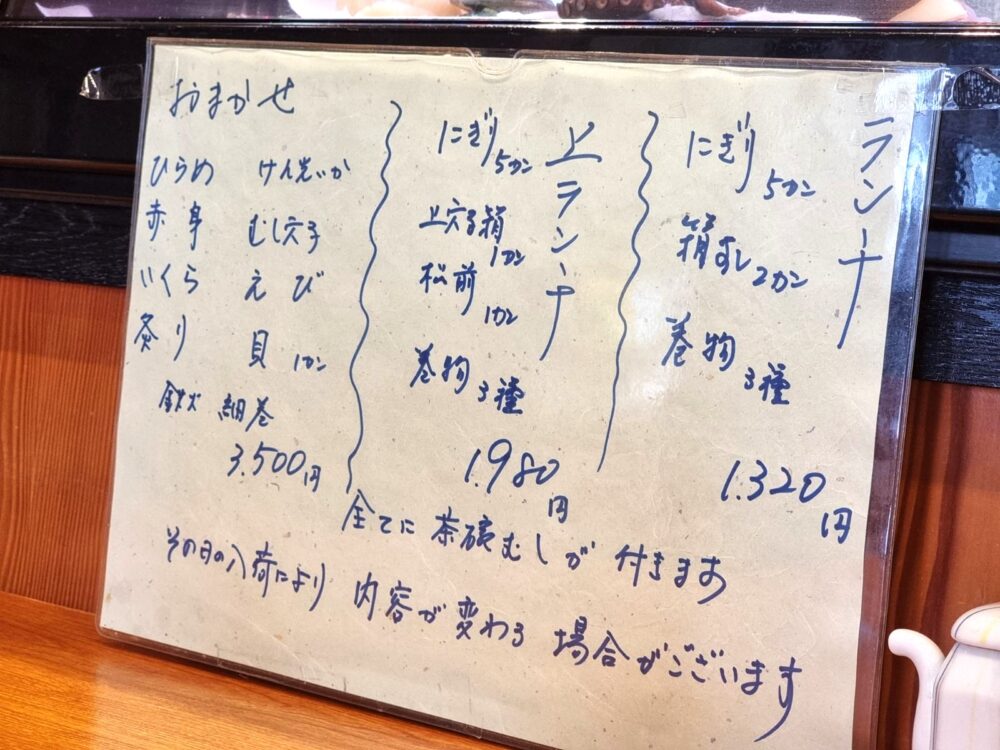 ランチ
にぎり 5カン
箱すし 2カン
巻物 3種
1.320円
上ランチ
にぎり 5カン
上穴子箱 1カン
松前 1カン
巻物 3種
1.980円
おまかせ
ひらめ けん先いか
赤身 むし穴子
いくら えび
炙り 貝 1カン
鉄火 細巻
3.500円
全てに茶碗むしが付きます
その日の入荷により 内容が変わる場合がございます